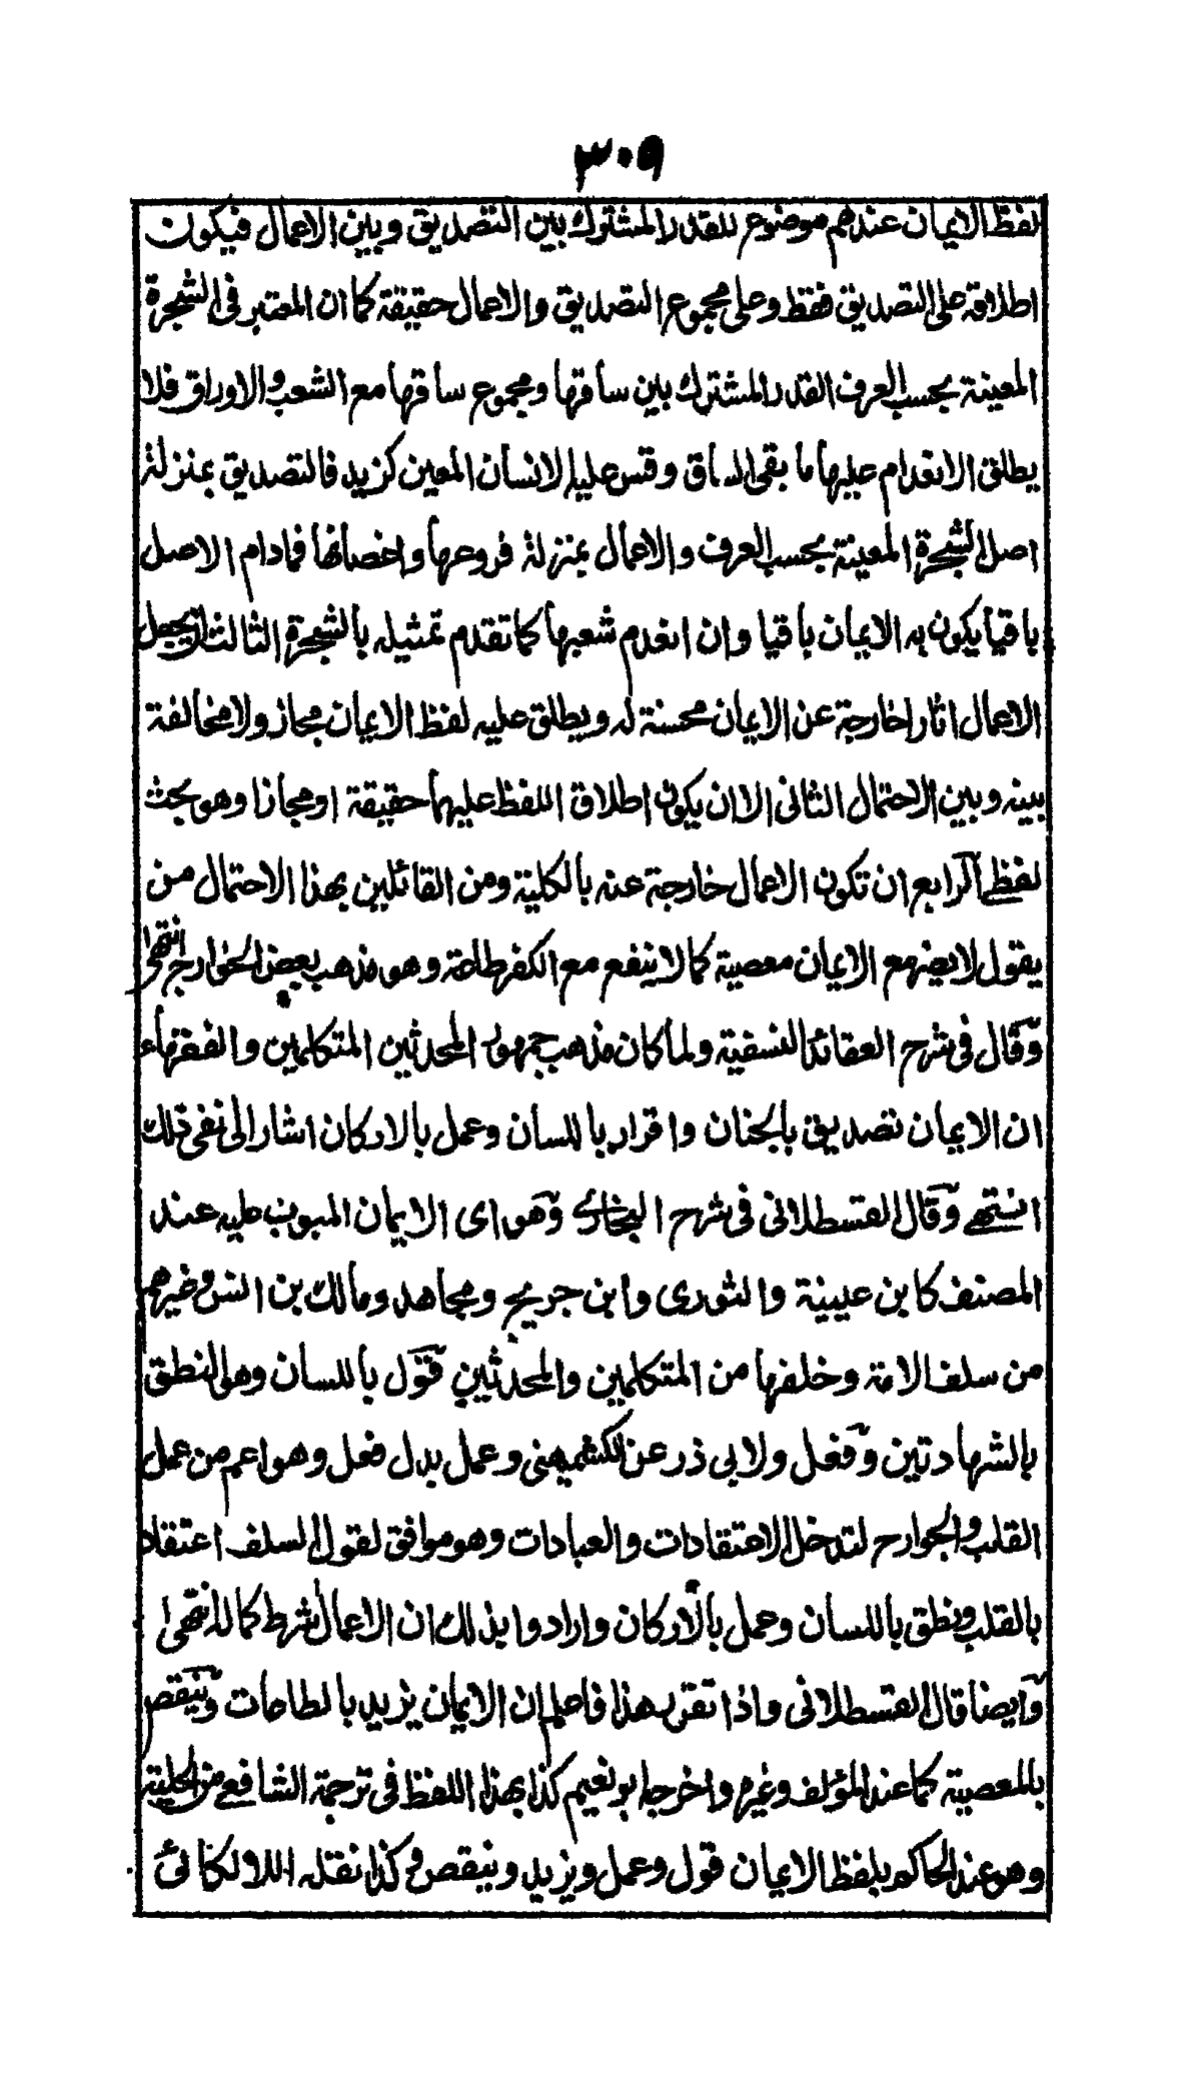 ٣٠٩
لفظ الايمان عندهم موضوع للقدر المشترك بين التصديق وبين الاعمال فيكون
اطلاقه على التصديق فقط وعلى مجموع التصديق والاعمال حقيقة كما ان المعتبر فى الشجرة
المعينة بحسب العرف القدر المشترك بين ساقها ومجموع ساقها مع الشعب والاوراق فلا
يطلق الانعدام عليها ما بقى الساق وقس عليه الانسان المعين كزيد فالتصديق بمنزلة
اصل الشجرة المعينة بحسب العرف والاعمال بمنزلة فروعها واغصانها فمادام الاصل
باقيا يكون به الايمان باقيا وان انعدم شعبها كما تقدم تمثيله بالشجرة الثالث ان يجعل
الاعمال اثارا خارجة عن الايمان محسنة له ويطلق عليه لفظ الايمان مجاز ولا مخالفة
بينه وبين الاحتمال الثانى الا ان يكون اطلاق اللفظ عليهما حقيقة او مجازا وهو بحث
لفظى الرابع ان تكون الاعمال خارجة عنه بالكلية ومن القائلين بهذا الاحتمال من
يقول لا يضر مع الايمان معصية كما لا ينفع مع الكفر طاعة وهو مذهب بعض الخوارج انتهى
وقال فى شرح العقائد النسفية ولما كان مذهب جمهور المحدثين المتكلمين والفقهاء
ان الايمان تصديق بالجنان واقرار باللسان وعمل بالاركان اشار الى نفى ذلك
انتهى وقال القسطلانى فى شرح البخارى وهو اى الايمان المبوب عليه عند
المصنف كابن عيينة والثورى وابن جريج ومجاهد ومالك بن انس وغيرهم
من سلف الامة وخلفها من المتكلمين والمحدثين قول باللسان وهو النطق
بالشهادتين وفعل ولابى ذر عن الكشميهنى وعمل بدل فعل وهو اعم من عمل
القلب والجوارح لتدخل الاعتقادات والعبادات وهو موافق لقول السلف اعتقاد
بالقلب ونطق باللسان وعمل بالاركان وارادوا بذلك ان الاعمال شرط كماله انتهى
وايضا قال القسطلانى واذا تقرر هذا فاعلم ان الايمان يزيد بالطاعات وينقص
بالمعصية كما عند المؤلف وغيره واخرجه ابو نعيم كذا بهذا اللفظ فى ترجمة الشافعى من الحلية
وهو عند الحاكم بلفظ الايمان قول وعمل ويزيد وينقص وكذا نقله اللالكائى